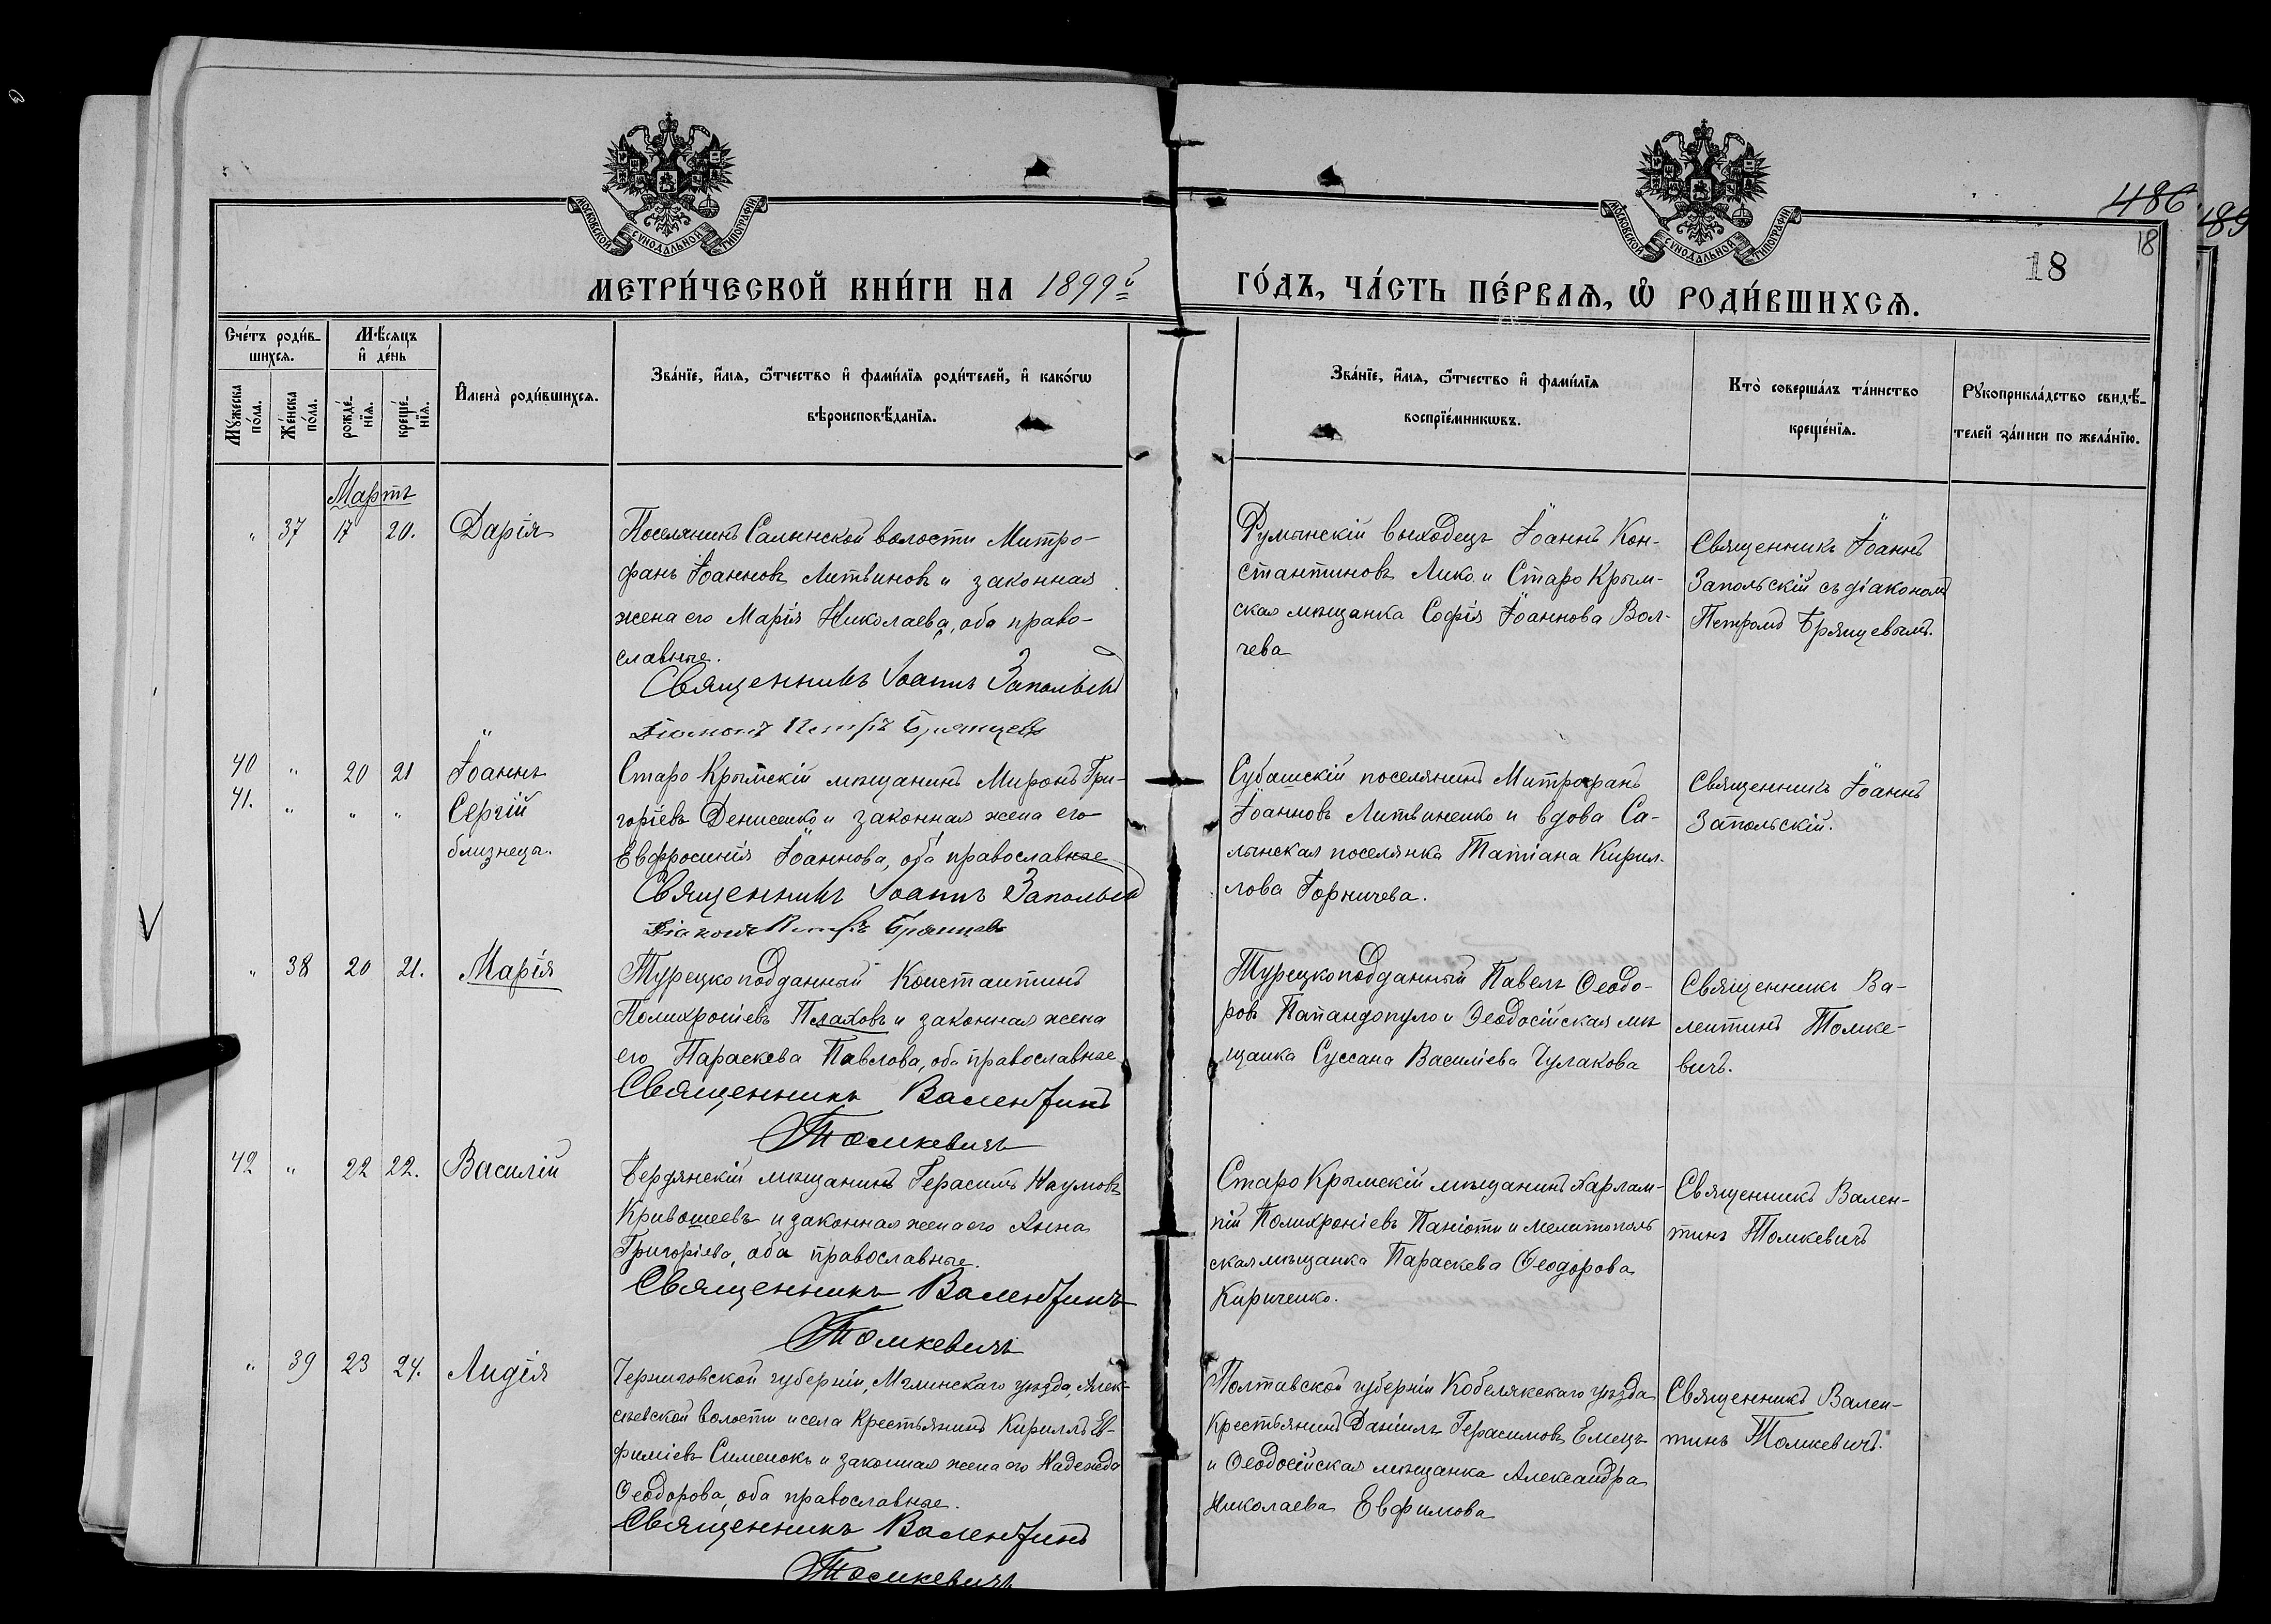 486.
489
18
18
МОСКОВСКОЙ СѴНОДАЛЬНОЙ ТИПОГРАФІИ
МОСКОВСКОЙ СѴНОДАЛЬНОЙ ТИПОГРАФІИ
МЕТРИ́ЧЕСКОЙ КНИ́ГИ НА 1899й
ГО́ДЪ, ЧА́СТЬ ПЕ́РВАѦ, Ѽ РОДИ́ВШИХСѦ.
Сче́тъ роди́в-
шихсѧ.
Мꙋ́жеска
по́ла.
Же́нска
по́ла.
Мѣ́сѧцъ
и҆ де́нь
рожде́-
нїѧ.
креще́-
нїѧ.
И҆мена̀ роди́вшихсѧ.
Зва́нїе, и҆́мѧ, ѻ҆́тчество и҆ фами́лїѧ роди́телей, и҆ како́гѡ
вѣроисповѣ́данїѧ.
Зва́нїе, и҆́мѧ, ѻ҆́тчество и҆ фами́лїѧ
воспрїе́мникѡвъ.
Кто̀ соверша́лъ та́инство
креще́нїѧ.
Рꙋкоприкла́дство свидѣ́-
телей за́писи по жела́нїю.
Мартъ
" 37 17 20. Дарія
Поселянинъ Салынской волости Митро-
фанъ Іоанновъ Литвиновъ и законная
жена его Марія Николаева, оба право-
славные.
Священникъ Іоаннъ Запольскій
Діаконъ Петръ Брянцевъ
Румынскій выходецъ Іоаннъ Кон-
стантиновъ Лико и Старо Крым-
ская мѣщанка Софія Іоаннова Вол-
чева
Священникъ Іоаннъ
Запольскій съ діакономъ
Петромъ Брянцевымъ.
40 " 20 21 Іоаннъ
41. " " " Сергій
близнецы.
Старо Крымскій мѣщанинъ Миронъ Гри-
горіевъ Денисенко и законная жена его
Евфросинія Іоаннова, оба православные
Священникъ Іоаннъ Запольскій
Діаконъ Петръ Брянцевъ
Субашскій поселянинъ Митрофанъ
Іоанновъ Литвиненко и вдова Са-
лынская поселянка Татіана Кирил-
лова Горничева.
Священникъ Іоаннъ
Запольскій.
" 38 20 21. Марія
Турецкоподданный Константинъ
Полихроніевъ Плаховъ и законная жена
его Параскева Павлова, оба православные
Священникъ Валентинъ
Томкевичъ
Турецкоподданный Павелъ Ѳеодо-
ровъ Папандопуло и Ѳеодосійская мѣ
щанка Суссана Василіева Чулакова
Священникъ Ва-
лентинъ Томке-
вичъ.
42 " 22 22. Василій
Бердянскій мѣщанинъ Герасимъ Наумовъ
Кривошеевъ и законная жена его Анна
Григоріева, оба православные.
Священникъ Валентинъ
Томкевичъ
Старо Крымскій мѣщанинъ Харлам-
пій Полихроніевъ Паніоти и мелитополь
ская мѣщанка Параскева Ѳеодорова
Кириченко.
Священникъ Вален-
тинъ Томкевичъ
" 39 23 24. Лидія
Черниговской губерніи, Мглинскаго уѣзда, Алек-
сѣевской волости и села крестьянинъ Кириллъ Ев-
фиміевъ Сименокъ и законная жена его Надежда
Ѳеодорова, оба православные.
Священникъ Валентинъ
Томкевичъ
Полтавской губерніи Кобелякскаго уѣзда
крестьянинъ Даніилъ Герасимовъ Емецъ
и Ѳеодосійская мѣщанка Александра
Николаева Евфимова
Священникъ Вален-
тинъ Томкевичъ.